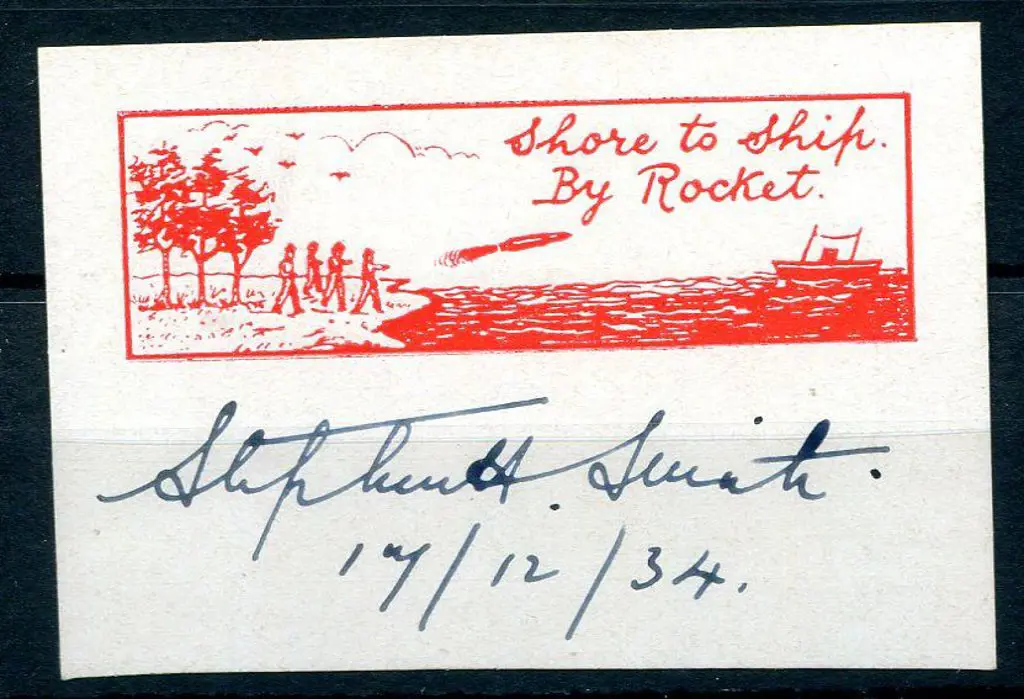 Shore to Ship.
By Rocket.
Stephen H. Smith.
17/12/34.